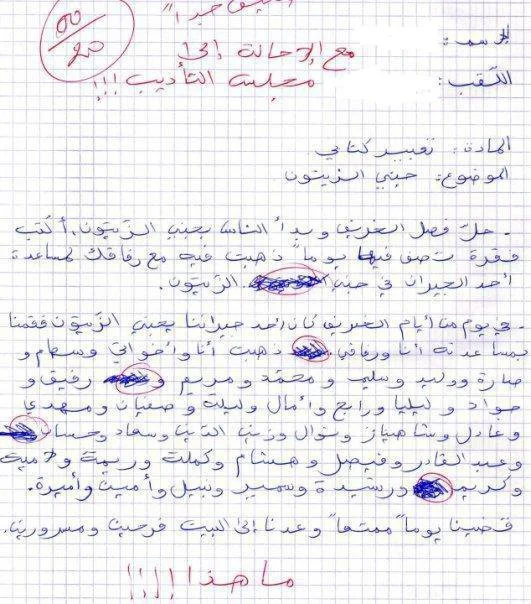 جدا"
00/20
الإسم:
مع الإحالة إلى
اللقب:
مجلس التأديب !!!
المادة: تعبير كتابي
الموضوع: جني الزيتون
- حلّ فصل الخريف و بدأ الناس بجني الزيتون. أكتب
فقرة تصف فيها يوماً ذهبت فيه مع رفاقك لمساعدة
أحد الجيران في جني الزيتون.
في يوم من أيام الخريف كان أحد جيراننا يجني الزيتون فقمنا
بمساعدته أنا ورفاقي. ذهبت أنا وأخواتي وسهام و
صارة ووليد وسليم و محمد و مريم و رفيق و
جواد و ليليا ورابح و أمال و ليلة و صفيان ومهدي
و عادل وشاهيناز ونوال وزين الدين وسعاد وحسان
وعبد القادر وفيصل و هشام وكملة وريمة ولامية
وكريم ورشيدة وسمير ونبيل وأمين وأميرة.
قضينا يوماً "ممتعا" وعدنا إلى البيت فرحين ومسرورين.
ما هذا !!!!